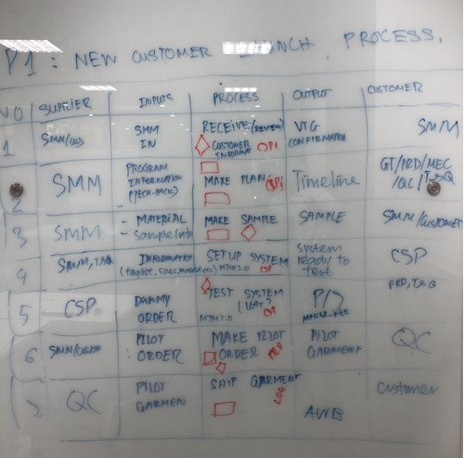 P1: NEW CUSTOMER LAUNCH PROCESS.
NO SUPPLIER INPUTS PROCESS OUTPUT CUSTOMER
1 SMM/CUS SMM IN RECEIVE (REVIEW) CUSTOMER INFORMAT VTG CONFIRMATION SMM
2 SMM PROGRAM INFORMATION (TECH-PACK) MAKE PLAN Timeline GT/PRD/MEC /QC/T.S.Q
3 SMM - MATERIAL - Sample info MAKE SAMPLE SAMPLE SMM/CUSTOMER
4 SMM, T.S.Q INFORMATION SETUP SYSTEM MTM2.0 System ready to test CSP
5 CSP DUMMY ORDER TEST SYSTEM (UAT) MTM2.0 P/D PRD, T.S.Q
6 PILOT ORDER MAKE PILOT ORDER PILOT GARMENT QC
7 QC PILOT GARMEN SHIP GARMENT LOG Customer